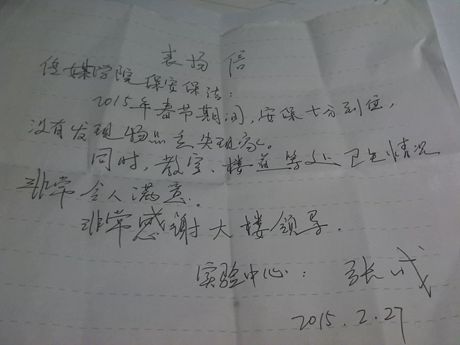 表扬信
传媒学院保安保洁:
2015年春节期间,安保十分到位,
没有发现物品丢失现象。
同时,教室、楼道等处卫生情况
非常令人满意。
非常感谢大楼领导.
实验中心: 张成
2015.2.27